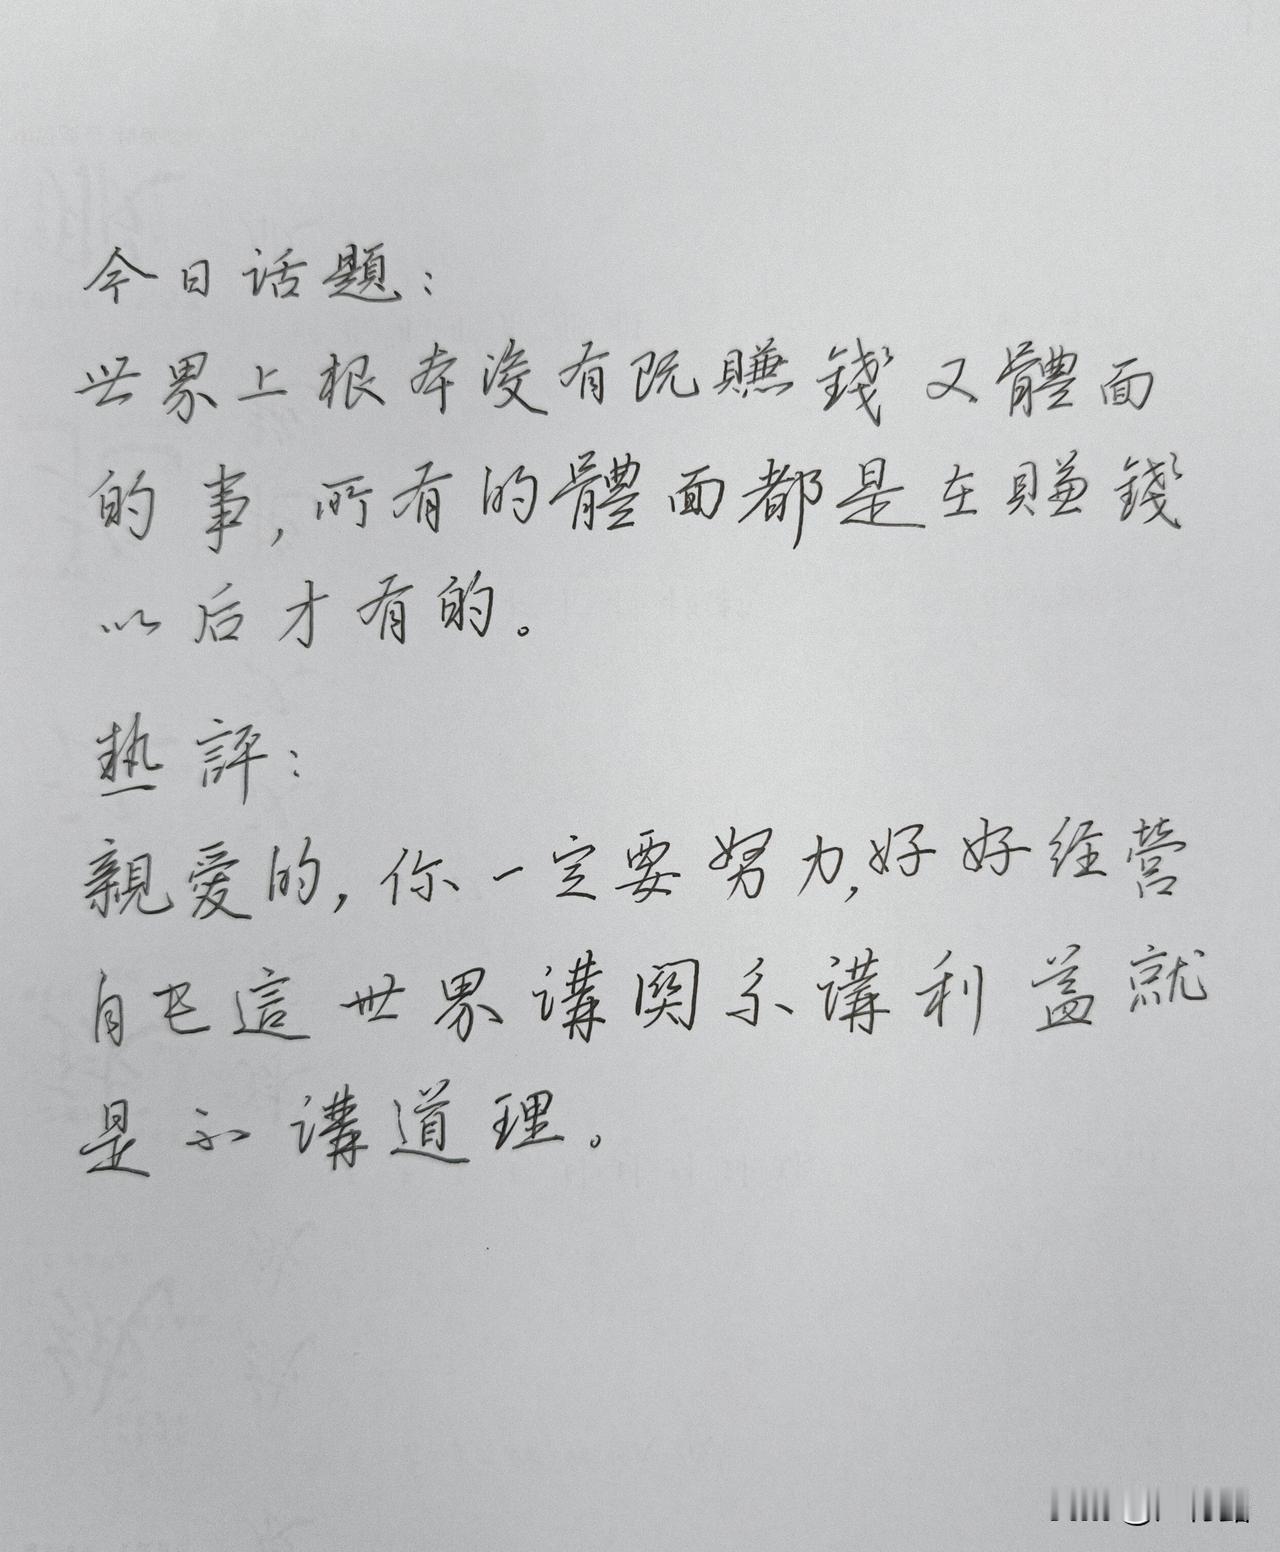 今日话題：
世界上根本沒有既賺錢又體面
的事，所有的體面都是在賺錢
以后才有的。
热評：
親愛的，你一定要努力，好好经营
自己這世界講関系講利益就
是不講道理。